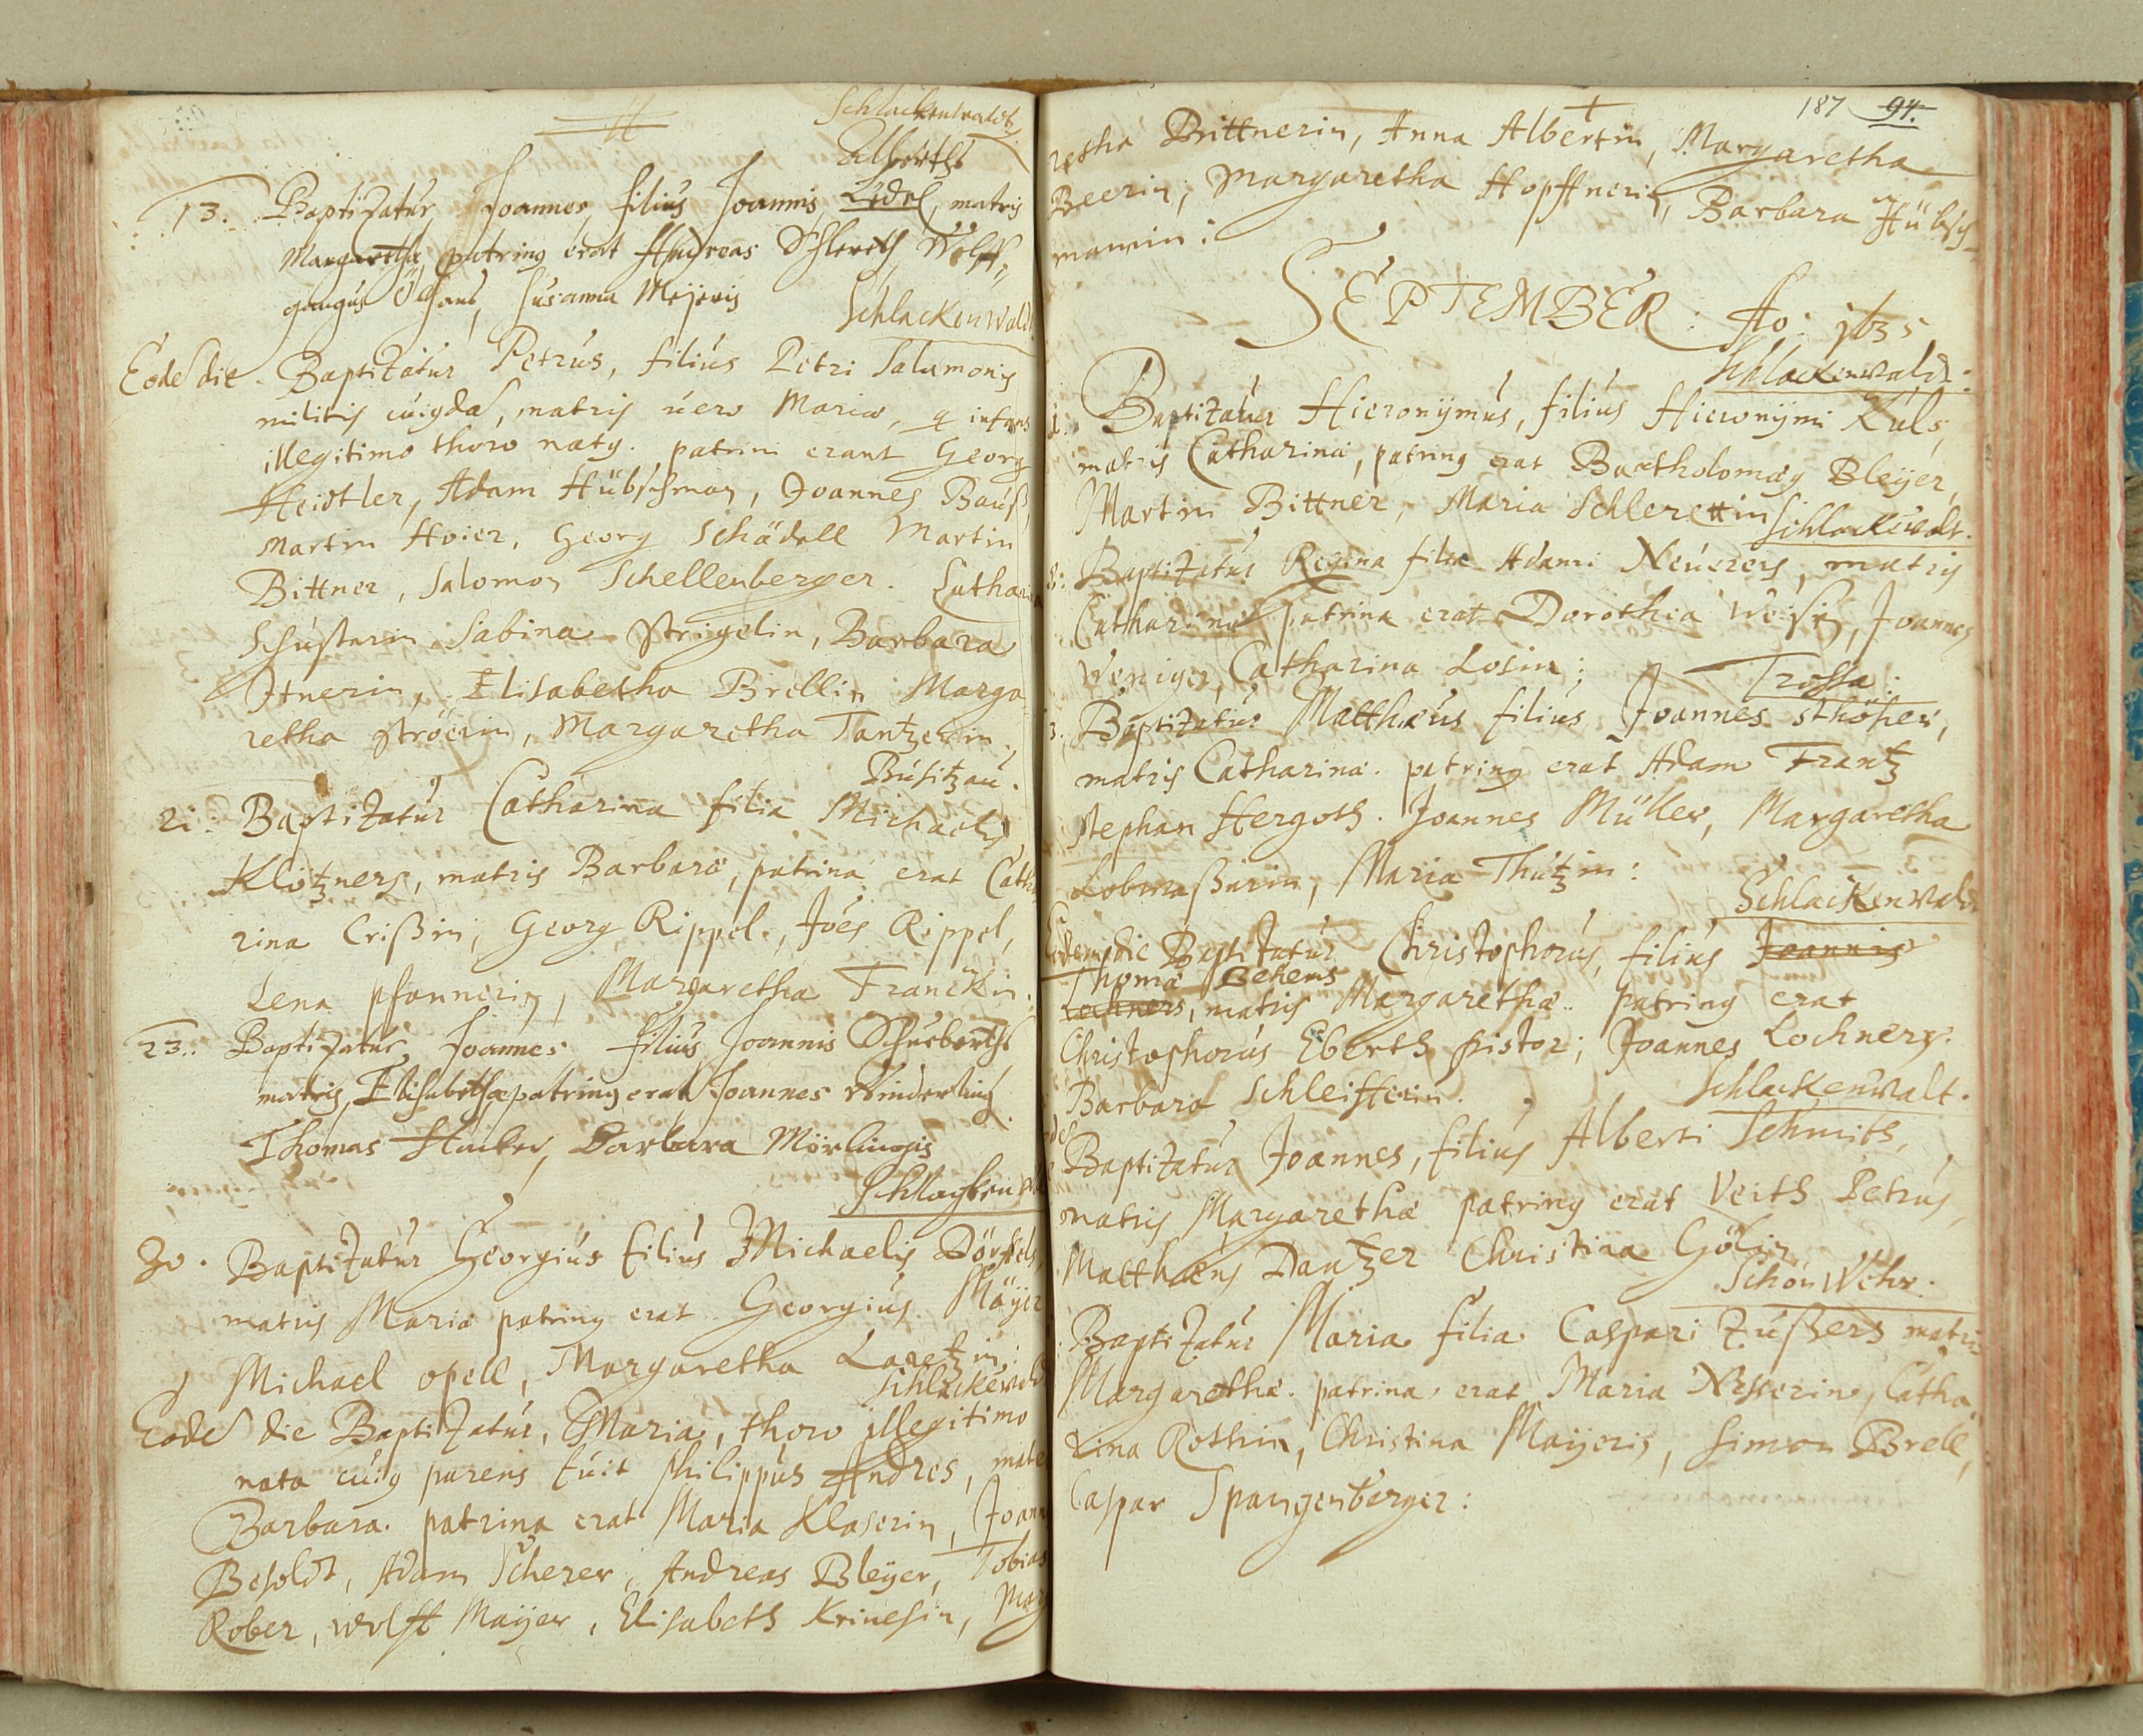 Schlackenwaldt
Alberths
13. Baptizatur Joannes, filius Joannis Lidel, matris
Margarethæ, patrinus erat Andreas Schlereth, Wolff,,
gangus Susanna Meijeris
Schlackenwald
Eode die. Baptizatur Petrus, filius Petri Salamonis
militis cuigda, matris uero Mariæ, q infans
illegitimo thoro natus. patrini erant Georg
Heidtler, Adam Hübschman, Joannes Bauß,
Martin Hoier, Georg Schädell Martin
Bittner, Salomon Schellenberger. Catharin
Schusterin Sabina Strigelin, Barbara
Itnerin, Elisabetha Brellin Marga
retha Ströerin, Margaretha Tantzerin.
Busitzau.
21. Baptizatur Catharina filia Michaelis
Klötzners, matris Barbaræ, patrina erat Catha
rina Crißin, Georg Rippel, Joes Rippel,
Lena pfannerin, Margaretha Franckin.
23. Baptizatur Joannes filius Joannis Schuberths
matris Elisabethæ patrinus erat Joannes Winderling
Thomas Hacker, Barbara Mörlingis
Schlackenwal
30. Baptizatur Georgius filius Michaelis Dörffels,
matris Mariæ patrinus erat Georgius Mäyer
Michael opell, Margaretha Laretzin:
Schlackewald
Eode die Baptizatur, Maria, thoro illegitimo
nata cuius parens fuit Philippus Andres, mate
Barbara. patrina erat Maria Klaserin, Joann
Besoldt, Adam Scherer, Andreas Bleÿer, Tobias
Rober, Wolff Maÿer, Elisabeth Krinesin, Marg
187 94.
retha Brittnerin, Anna Albertin, Margaretha
Beerin, Margaretha Hopffnerin, Barbara Hübsch-
manin:
SEPTEMBER: Ao: 1635
Schlackenwald:
1. Baptizatur Hieronÿmus, filius Hieronÿmi Kuls,
matris Catharinæ, patrinus erat Bartholomæus Bleÿer,
Martin Bittner, Maria Schlerettin
Schlackewalt.
8: Baptizatur Regina filia Adami Neuerers, matris
Catharinæ patrina erat Dorothea Weisin, Joannes
Weniger, Catharina Losin:
Trossa:
3. Baptizatur Matthæus filius Joannes Sthösser,
matris Catharinæ. patrinus erat Adam Frantz
Stephan Hergoth. Joannes Müller, Margaretha
Lobmaßerin, Maria Thützin:
Schlackenwald
Eodem die Baptizatur Christophorus, filius Joannis
Thomæ Behems
Lochners, matris Margarethæ. patrinus erat
Christophorus Eberth pistor; Joannes Lochners.
Barbara Schleifferin.
Schlackenwalt.
Baptizatur Joannes, filius Alberti Schmits,
matris Margarethæ patrinus erat Veith Petrus,
Matthæus Dantzer Christina Gölin
SchönWehr.
Baptizatur Maria filia Caspari Zußers matris
Margarethæ. patrina erat Maria Nesserin, Catha
rina Rothin, Christina Maÿeris, Simon Brell,
Caspar Spangenberger: